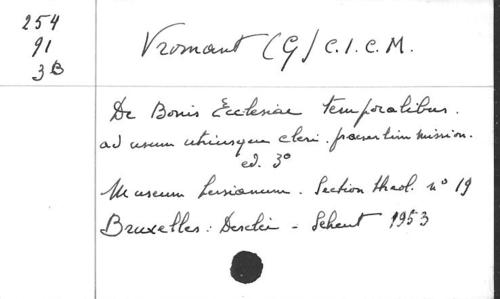 254
91
3B
Vromant (G) C.I.C.M.
De Bonis Ecclesiae temporalibus.
ad usum utriusque cleri. praesertim mission.
ed. 3°
Museum Lessianum. Section théol. n° 19
Bruxelles: Desclée - Scheut 1953